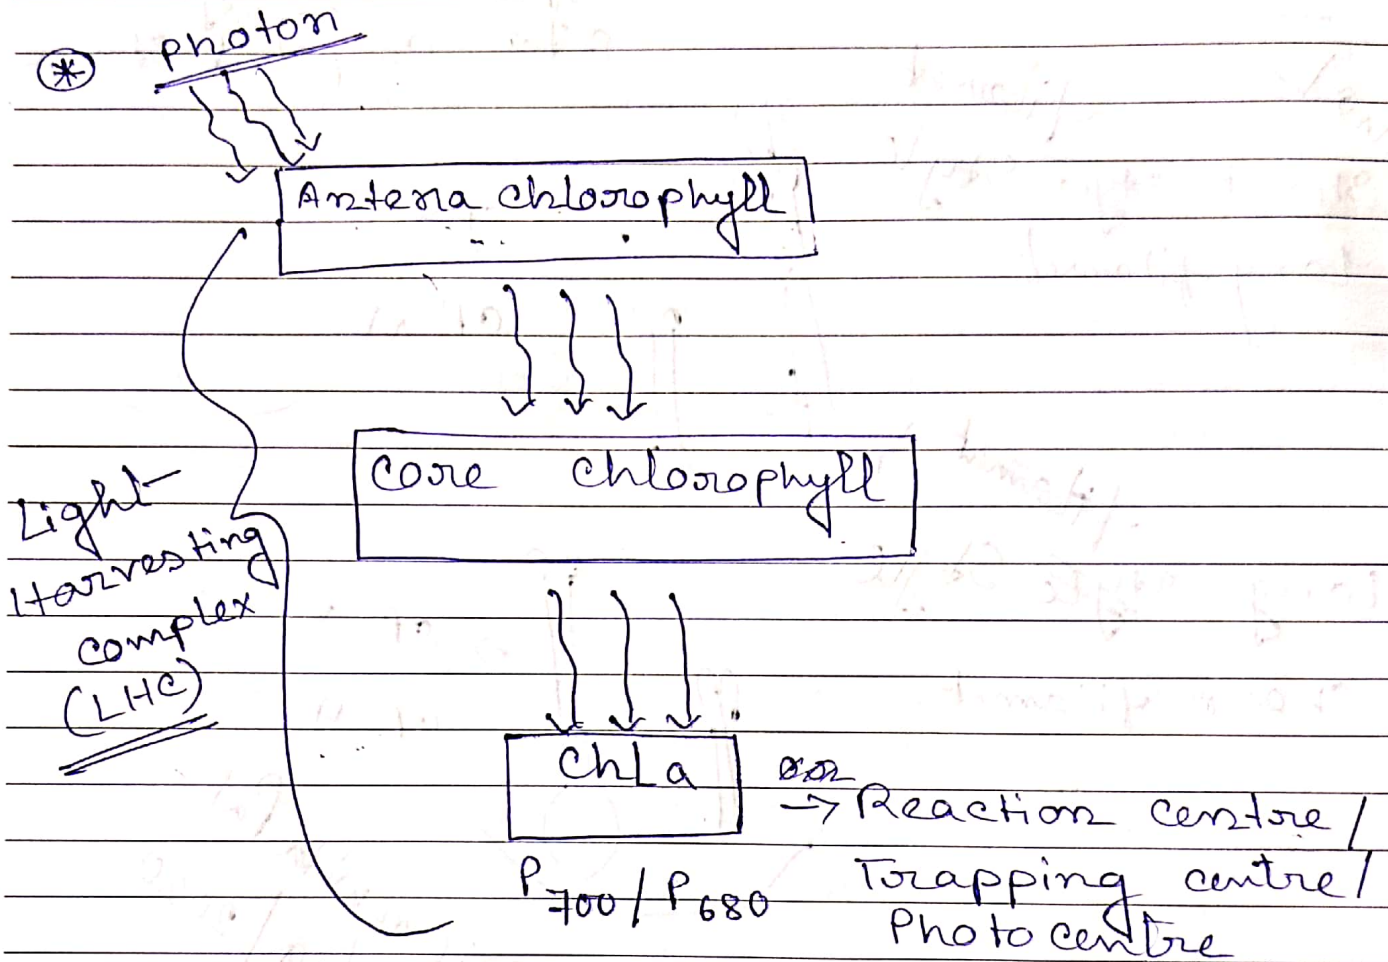 photon
Antena chlorophyll
core chlorophyll
Light-
Harvesting
complex
(LHC)
Chla
→ Reaction centre /
P700 / P680
Trapping centre /
Photo centre